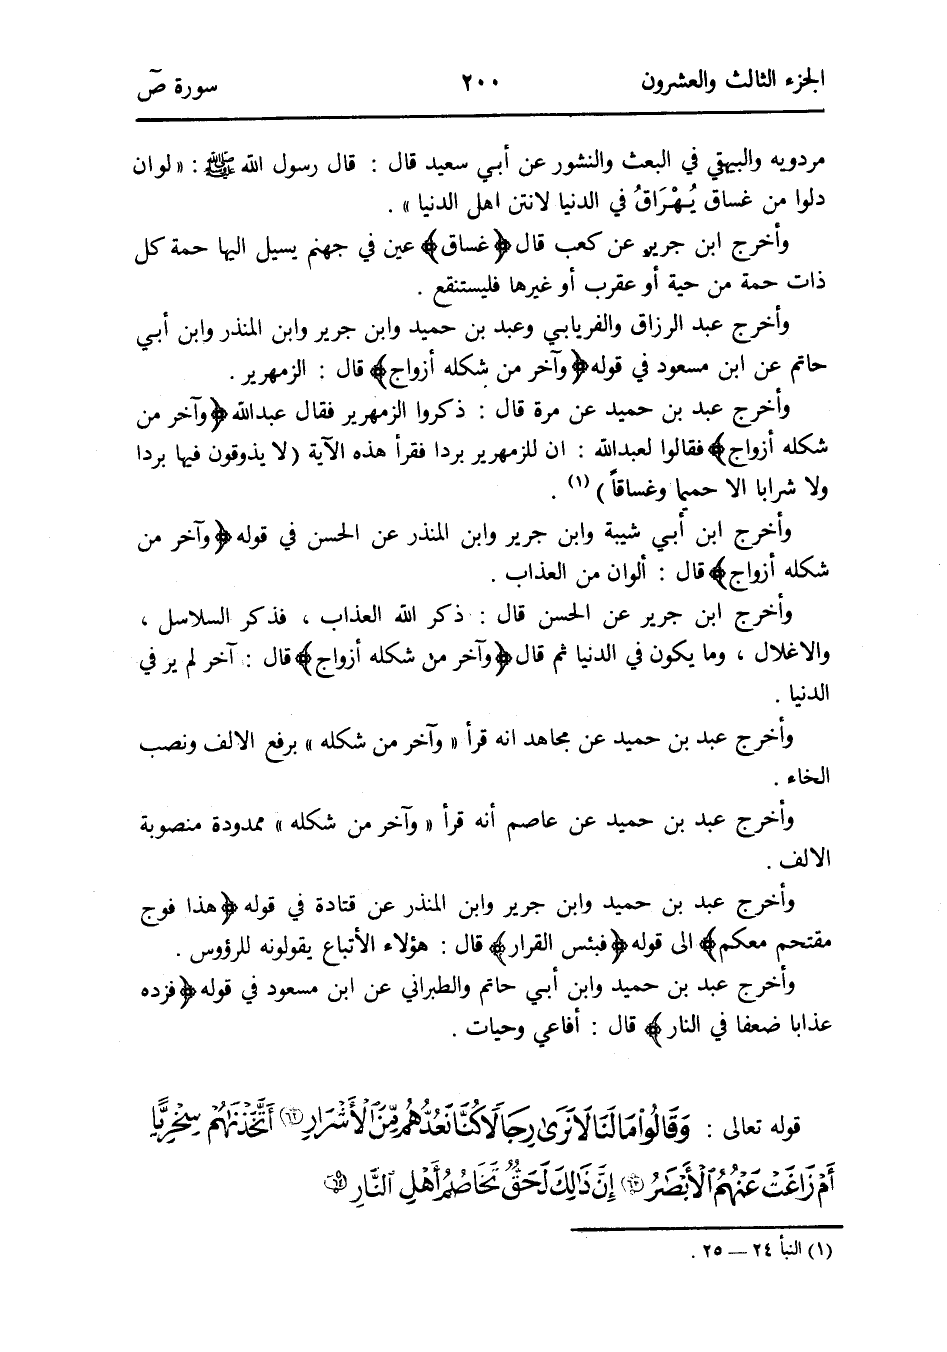 الجزء الثالث والعشرون ٢٠٠ سورة صٓ
مردويه والبيهقي في البعث والنشور عن أبي سعيد قال : قال رسول الله ﷺ : « لو ان
دلوا من غساق يُهْرَاقُ في الدنيا لانتن اهل الدنيا » .
وأخرج ابن جرير عن كعب قال ﴿غساق﴾ عين في جهنم يسيل اليها حمة كل
ذات حمة من حية أو عقرب أو غيرها فليستنقع .
وأخرج عبد الرزاق والفريابي وعبد بن حميد وابن جرير وابن المنذر وابن أبي
حاتم عن ابن مسعود في قوله ﴿وآخر من شكله أزواج﴾ قال : الزمهرير .
وأخرج عبد بن حميد عن مرة قال : ذكروا الزمهرير فقال عبدالله ﴿وآخر من
شكله أزواج﴾ فقالوا لعبدالله : ان للزمهرير بردا فقرأ هذه الآية (لا يذوقون فيها بردا
ولا شرابا الا حميما وغساقاً ) (١) .
وأخرج ابن أبي شيبة وابن جرير وابن المنذر عن الحسن في قوله ﴿وآخر من
شكله أزواج﴾ قال : ألوان من العذاب .
وأخرج ابن جرير عن الحسن قال : ذكر الله العذاب ، فذكر السلاسل ،
والاغلال ، وما يكون في الدنيا ثم قال ﴿وآخر من شكله أزواج﴾ قال : آخر لم ير في
الدنيا .
وأخرج عبد بن حميد عن مجاهد انه قرأ « وآخر من شكله » برفع الالف ونصب
الخاء .
وأخرج عبد بن حميد عن عاصم أنه قرأ « وآخر من شكله » ممدودة منصوبة
الالف .
وأخرج عبد بن حميد وابن جرير وابن المنذر عن قتادة في قوله ﴿هذا فوج
مقتحم معكم﴾ الى قوله ﴿فبئس القرار﴾ قال : هؤلاء الأتباع يقولونه للرؤوس .
وأخرج عبد بن حميد وابن أبي حاتم والطبراني عن ابن مسعود في قوله ﴿فزده
عذابا ضعفا في النار ﴾ قال : أفاعي وحيات .
قوله تعالى : وَقَالُوا۟ مَالَنَا لَا نَرَىٰ رِجَالًا كُنَّا نَعُدُّهُم مِّنَ ٱلْأَشْرَارِ ﴿٦٢﴾ أَتَّخَذْنَٰهُمْ سِخْرِيًّا
أَمْ زَاغَتْ عَنْهُمُ ٱلْأَبْصَٰرُ ﴿٦٣﴾ إِنَّ ذَٰلِكَ لَحَقٌّ تَخَاصُمُ أَهْلِ ٱلنَّارِ ﴿٦٤﴾
(١) النبأ ٢٤ — ٢٥ .